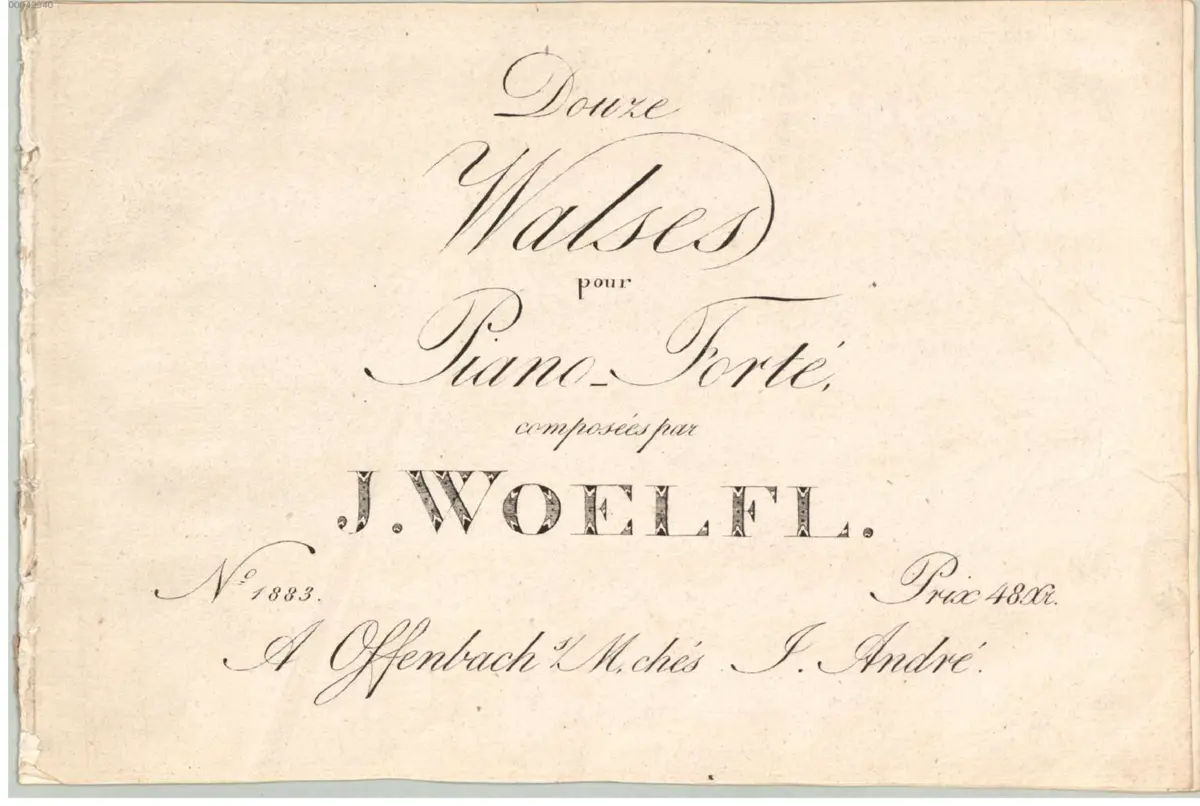 00049340
Douze
Walses
pour
Piano-Forté,
composées par
J. WOELFL.
Nº 1883. Prix 48 Xr.
A Offenbach s/M, chés J. André.